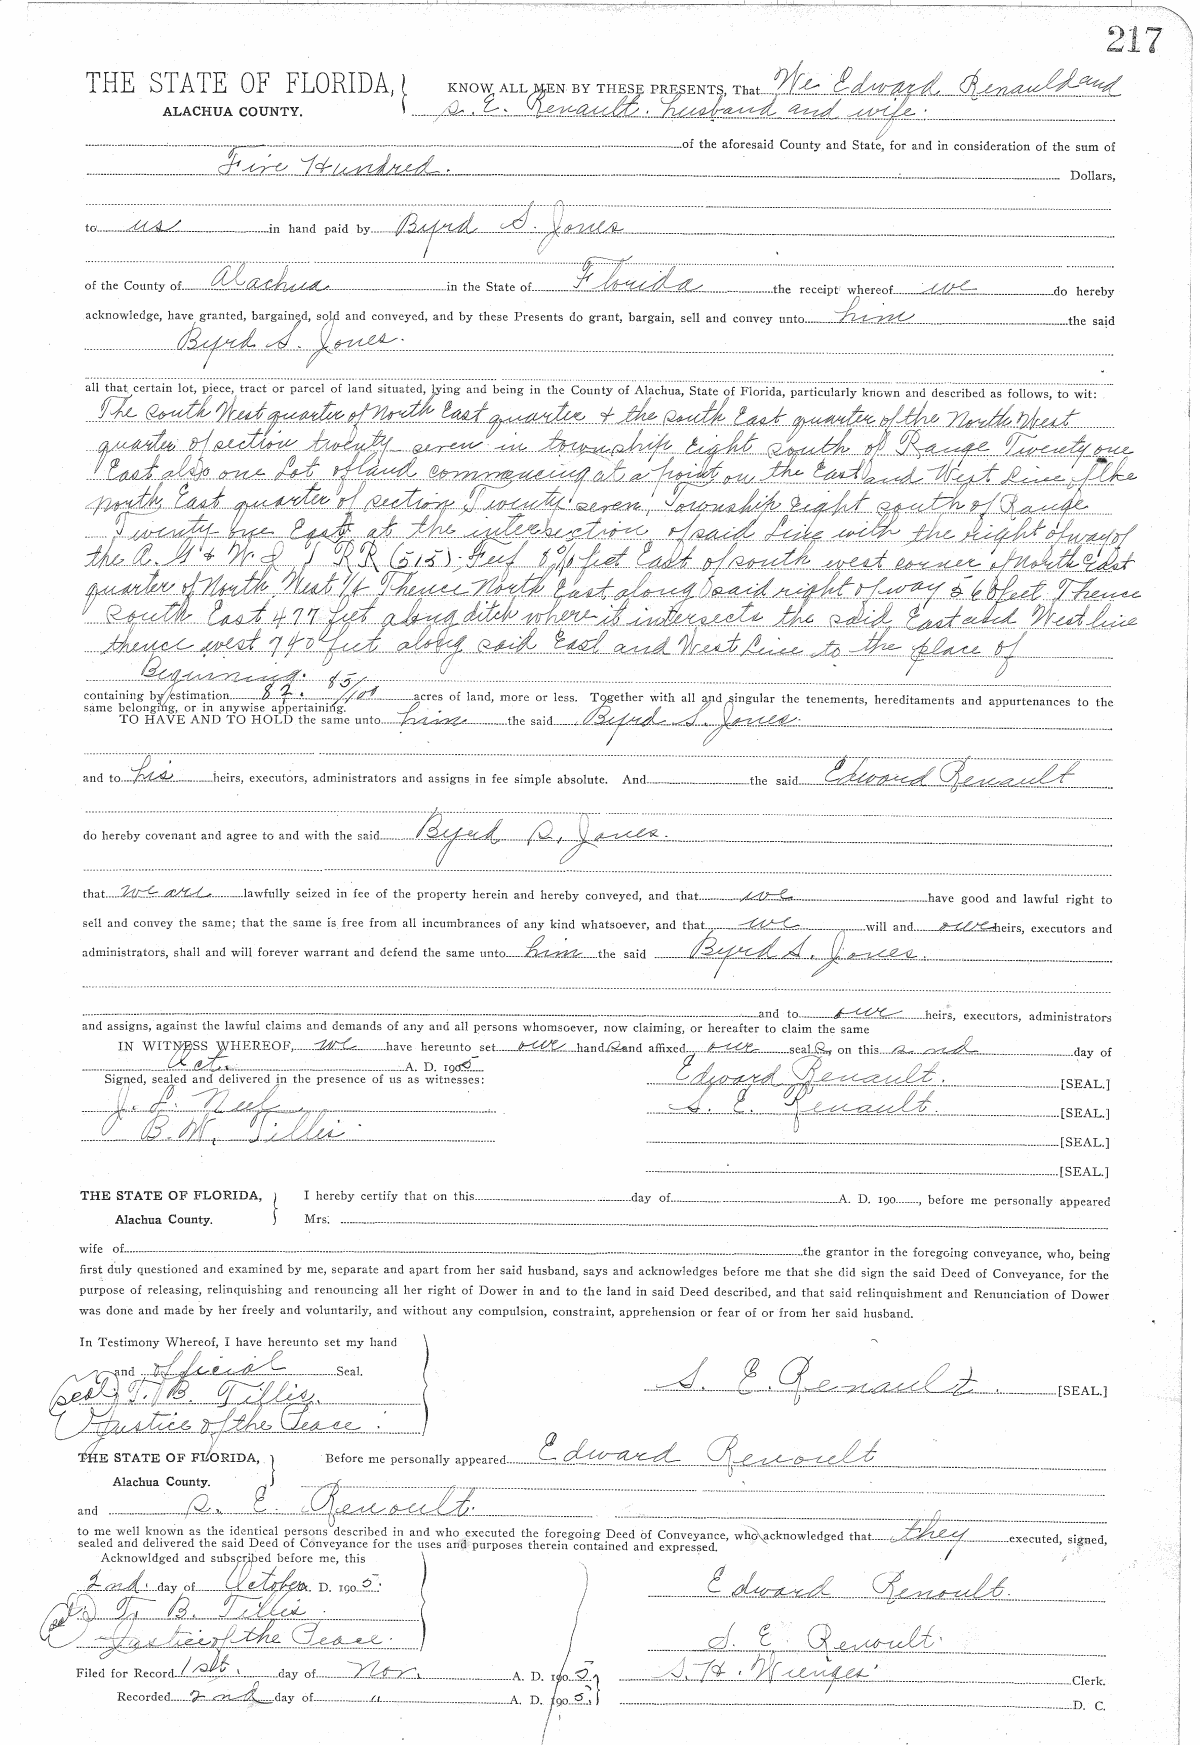 217
THE STATE OF FLORIDA, KNOW ALL MEN BY THESE PRESENTS, That We Edward Renauld and
ALACHUA COUNTY. S. E. Renault. husband and wife.
of the aforesaid County and State, for and in consideration of the sum of
Five Hundred. Dollars,
to us in hand paid by Byrd S. Jones
of the County of Alachua in the State of Florida the receipt whereof we do hereby
acknowledge, have granted, bargained, sold and conveyed, and by these Presents do grant, bargain, sell and convey unto him the said
Byrd S. Jones.
all that certain lot, piece, tract or parcel of land situated, lying and being in the County of Alachua, State of Florida, particularly known and described as follows, to wit:
The South West quarter of North East quarter & the South East quarter of the North West
quarter of section twenty seven in township Eight south of Range Twenty one
East also one Lot of land commencing at a point on the East and West Line of the
north East quarter of section Twenty seven, Township Eight south of Range
Twenty one East at the intersection of said Line with the right of way of
the R R (515) feet East of south west corner of North East
quarter of North West 1/4 Thence North East along said right of way 560 feet Thence
South East 477 feet along ditch where it intersects the said East and West line
thence west 740 feet along said East and West Line to the place of
Beginning.
containing by estimation 82. 85/100 acres of land, more or less. Together with all and singular the tenements, hereditaments and appurtenances to the
same belonging, or in anywise appertaining.
TO HAVE AND TO HOLD the same unto him the said Byrd S. Jones.
and to his heirs, executors, administrators and assigns in fee simple absolute. And the said Edward Renault
do hereby covenant and agree to and with the said Byrd S. Jones.
that we are lawfully seized in fee of the property herein and hereby conveyed, and that we have good and lawful right to
sell and convey the same; that the same is free from all incumbrances of any kind whatsoever, and that we will and our heirs, executors and
administrators, shall and will forever warrant and defend the same unto him the said Byrd S. Jones.
and to our heirs, executors, administrators
and assigns, against the lawful claims and demands of any and all persons whomsoever, now claiming, or hereafter to claim the same
IN WITNESS WHEREOF, we have hereunto set our hands and affixed our seals, on this 2nd day of
Oct. A. D. 1905
Signed, sealed and delivered in the presence of us as witnesses: Edward Renault. [SEAL.]
J. L. Neef S. E. Renault. [SEAL.]
B. W. Tillis [SEAL.]
[SEAL.]
THE STATE OF FLORIDA, I hereby certify that on this day of A. D. 190 , before me personally appeared
Alachua County. Mrs.
wife of the grantor in the foregoing conveyance, who, being
first duly questioned and examined by me, separate and apart from her said husband, says and acknowledges before me that she did sign the said Deed of Conveyance, for the
purpose of releasing, relinquishing and renouncing all her right of Dower in and to the land in said Deed described, and that said relinquishment and Renunciation of Dower
was done and made by her freely and voluntarily, and without any compulsion, constraint, apprehension or fear of or from her said husband.
In Testimony Whereof, I have hereunto set my hand
and official Seal.
(seal) T. B. Tillis. S. E. Renault. [SEAL.]
Justice of the Peace.
THE STATE OF FLORIDA, Before me personally appeared Edward Renoult
Alachua County.
and S. E. Renoult.
to me well known as the identical persons described in and who executed the foregoing Deed of Conveyance, who acknowledged that they executed, signed,
sealed and delivered the said Deed of Conveyance for the uses and purposes therein contained and expressed.
Acknowldged and subscribed before me, this
2nd. day of October A. D. 1905. Edward Renoult.
(seal) T. B. Tillis
Justice of the Peace. S. E. Renoult.
Filed for Record 1st. day of Nov. A. D. 1905 S. H. Wienges Clerk.
Recorded 2nd day of " A. D. 1905 D. C.